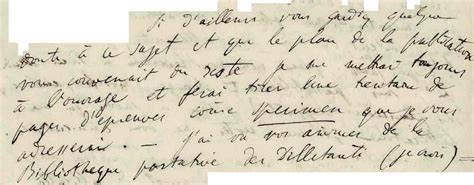 si d'ailleurs vous gardiez quelque
doute à ce sujet et que le plan de la publication
vous convenait du reste je me mettrai toujours
à l'ouvrage et ferai tirer une trentaine de
pages d'épreuves comme specimen que je vous
adresserai — j'ai vu vos annonces de la
Bibliothèque portative des Dilletanti (je crois) —